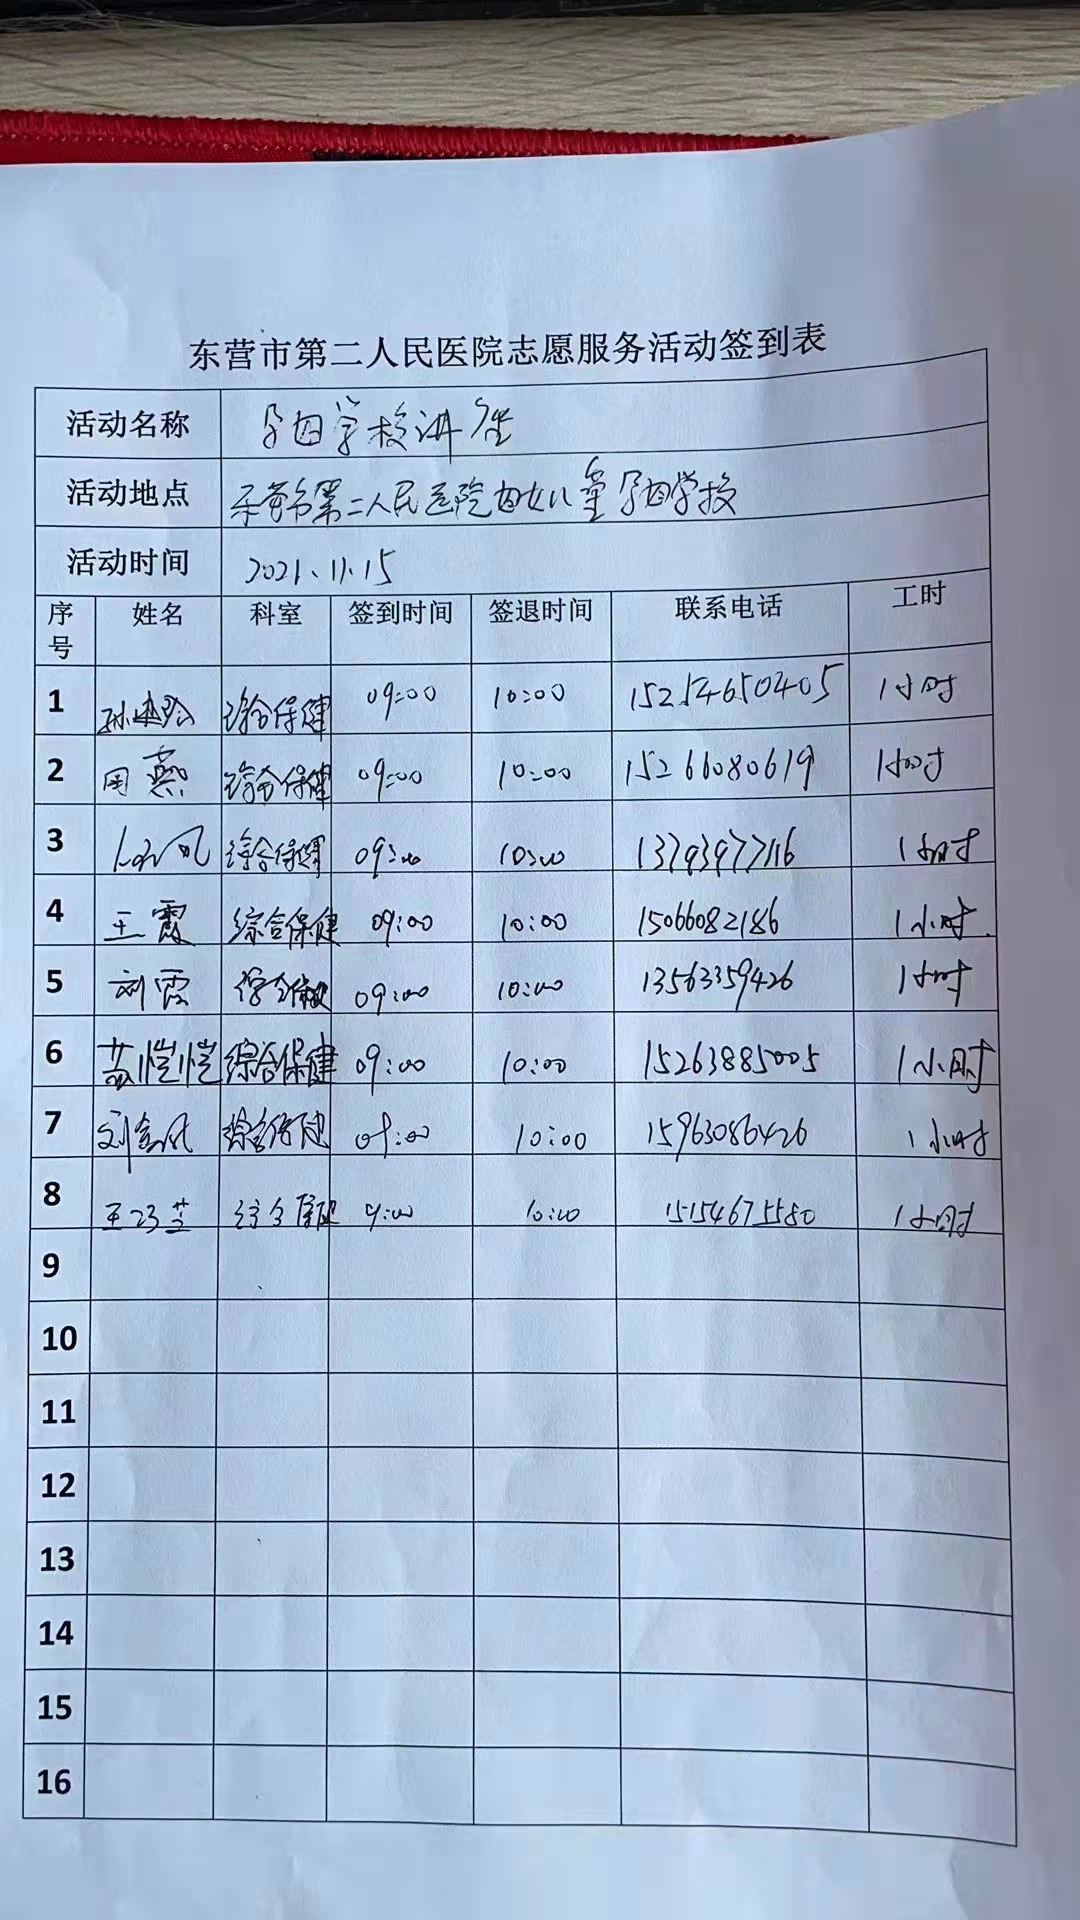 东营市第二人民医院志愿服务活动签到表
活动名称 孕妇学校讲座
活动地点 东营市第二人民医院妇女儿童孕妇学校
活动时间 2021.11.15
序号 姓名 科室 签到时间 签退时间 联系电话 工时
1 综合保健 09:00 10:00 15254650405 1小时
2 周燕 综合保健 09:00 10:00 15266080619 1小时
3 综合保健 09:00 10:00 13793977116 1小时
4 王霞 综合保健 09:00 10:00 15066082186 1小时
5 刘霞 综合保健 09:00 10:00 13563359426 1小时
6 苏恺恺 综合保健 09:00 10:00 15263885005 1小时
7 刘金凤 综合保健 09:00 10:00 15963086426 1小时
8 综合保健 9:00 10:00 15154675580 1小时
9
10
11
12
13
14
15
16